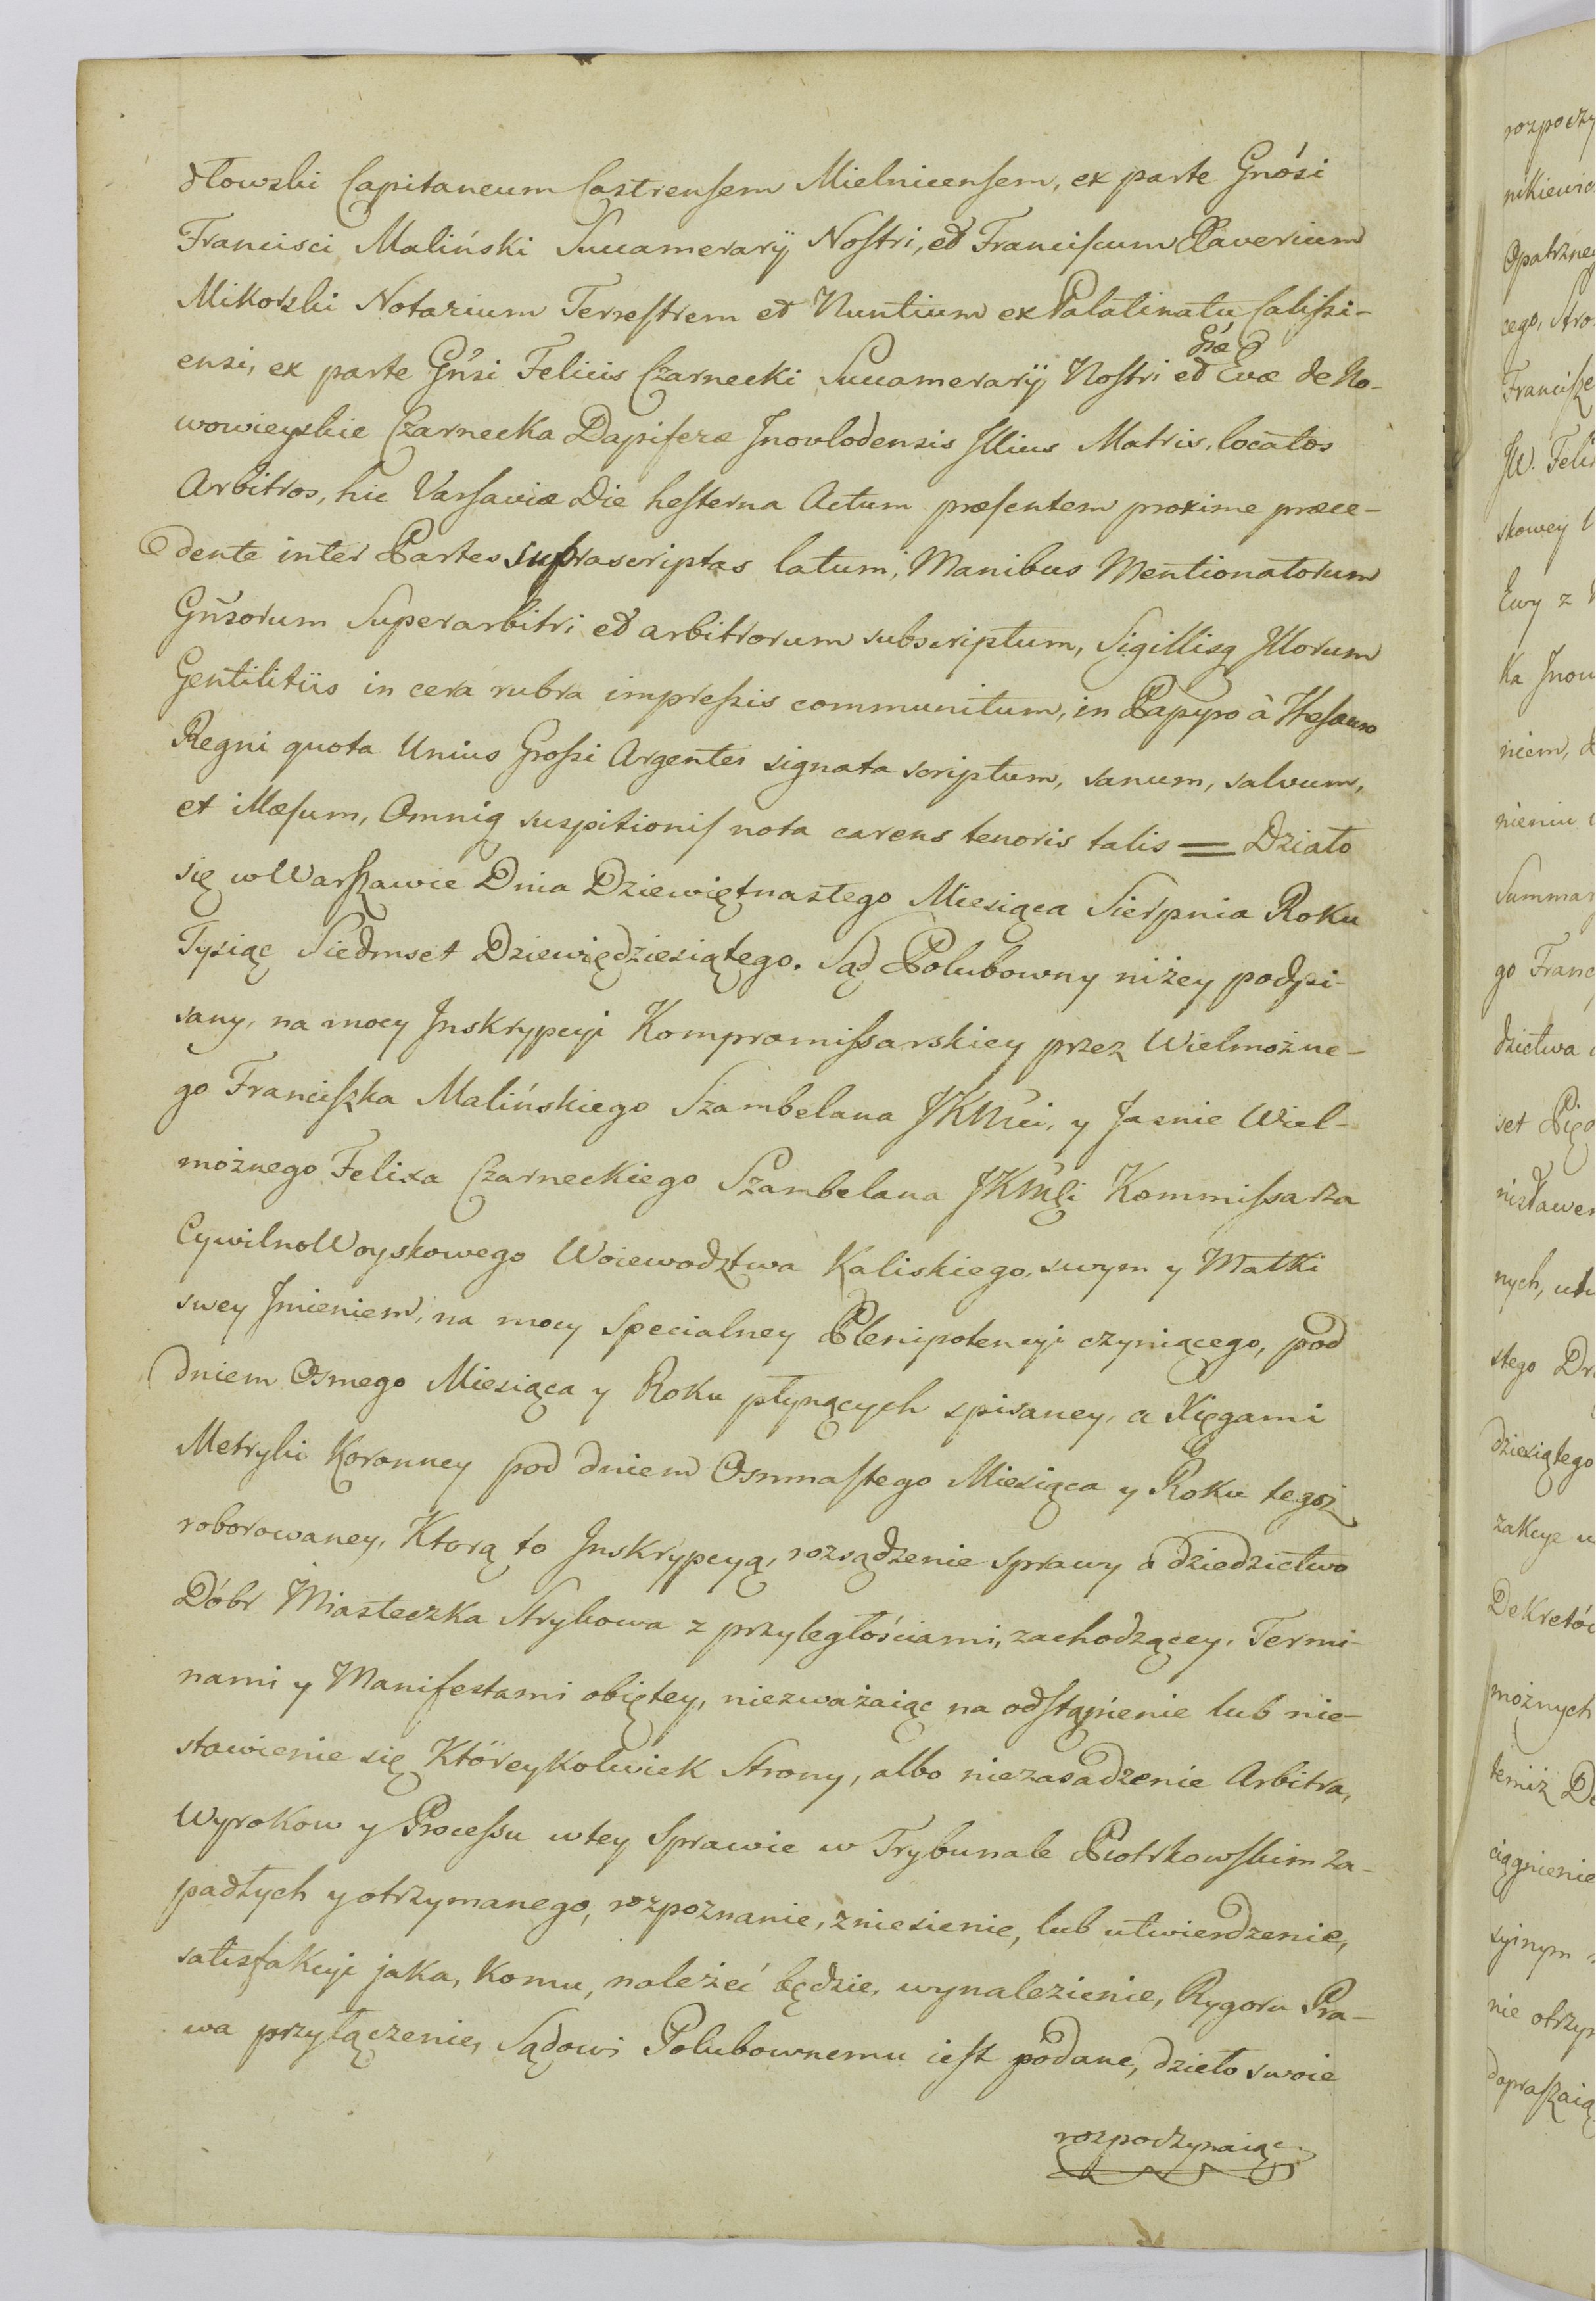 dłowski Capitaneum Castrensem Mielnicensem, ex parte Gnósi
Francisci Maliński Succamerarij Nostri, et Franciscum Xaverium
Mikorski Notarium Terrestrem et Nuntium ex Palatinatu Calissi-
ensi, ex parte Gńsi Felicis Czarnecki Succamerarij Nostri et Gsæ Evæ de No-
wowieyskie Czarnecka Dapiferæ Jnovlodensis Illius Matris, locatos
Arbitros, hic Varsaviæ Die hesterna Actum præsentem proxime præce-
dente inter Partes suprascriptas latum, Manibus Mentionatorum
Gńsorum Superarbitri et arbitrorum subscriptum, Sigillisq Illorum
Gentilitiis in cera rubra impressis communitum, in Papyro à Thesauro
Regni quota Unius Grossi Argentei signata scriptum, sanum, salvum,
et illæsum, Omniq suspitionis nota carens tenoris talis = Działo
się w Warszawie Dnia Dziewiętnastego Miesiąca Sierpnia Roku
Tysiąc Siedmset Dziewiędziesiątego. Sąd Polubowny niżey podpi-
sany, na mocy Jnskrypcyi Kompromissarskiey przez Wielmożne-
go Franciszka Malińskiego Szambelana JKMci, y Jasnie Wiel-
możnego Felixa Czarneckiego Szambelana JKMci Kommissarza
CywilnoWoyskowego Woiewodztwa Kaliskiego, swym y Matki
swey Jmieniem, na mocy Specialney Plenipotencyi czyniącego, pod
dniem Osmego Miesiąca y Roku płynących spisaney, a Xięgami
Metryki Koronney pod dniem Osmnastego Miesiąca y Roku tegoż
roborowaney, Ktorą to Jnskrypcyą, rozsądzenie Sprawy o dziedzictwo
Dóbr Miasteczka Strykowa z przyległościami, zachodzącey, Termi-
nami y Manifestami obiętey, niezważaiąc na odstąpienie lub nie-
stawienie się Ktoreykolwiek Strony, albo niezasadzenie Arbitra,
Wyrokow y Processu wtey Sprawie w Trybunale Piotrkowskim za-
padłych y otrzymanego, rozpoznanie, zniesienie, lub utwierdzenie,
satisfakcyi jaka, komu, należeć będzie, wynalezienie, Rygoru Pra-
wa przyłączenie, Sądowi Polubownemu iest podane, dzieło swoie
rozpoczynaiąc
rozpoczy
nikiewic
Opatrzne
cego, Stro
Francisze
JW. Feli
skowey
Ewy z
ka Jnow
niem,
nieniu
Summar
go Franc
dzictwa
set Pięd
nisławe
nych,
stego
dziesiątego
zakcye
Dekretów
możnych
temiż
ciągnienie
syinym
nie otrzy
dopraszaią